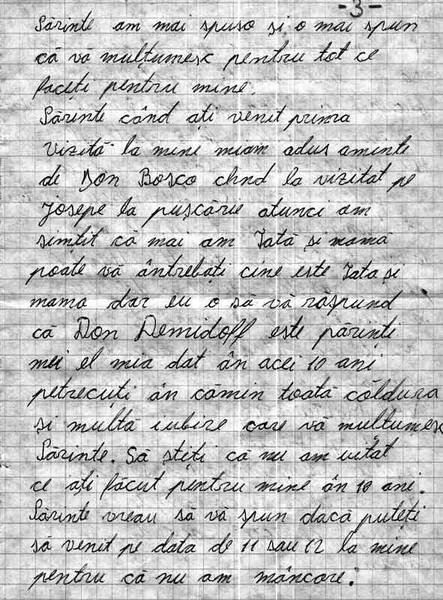 -3-
Părinte am mai spuso și o mai spun
că vă multumesc pentru tot ce
faceți pentru mine.
Părinte când ați venit prima
vizită la mine miam adus aminte
de Don Bosco cînd la vizitat pe
Josepe la pușcărie atunci am
simtit că mai am Tată și mamă
poate vă întrebați cine este Tata și
mama dar eu o să vă răspund
că Don Demidoff este părinți
mei el mia dat ân acei 10 ani
petrecuți ân cămin toată căldura
și multă iubire care vă multumesc
Părinte. Să știți că nu am uitat
ce ați făcut pentru mine ân 10 ani.
Părinte vreau să vă spun dacă puteți
să venit pe data de 11 sau 12 la mine
pentru că nu am mâncare.